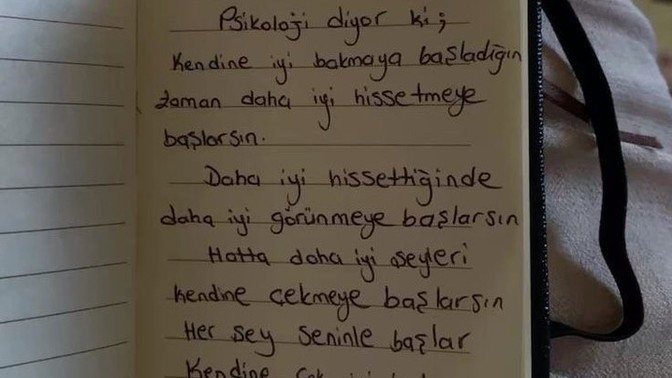 Psikoloji diyor ki;
Kendine iyi bakmaya başladığın
zaman daha iyi hissetmeye
başlarsın.
Daha iyi hissettiğinde
daha iyi görünmeye başlarsın
Hatta daha iyi şeyleri
kendine çekmeye başlarsın
Her şey seninle başlar
Kendine